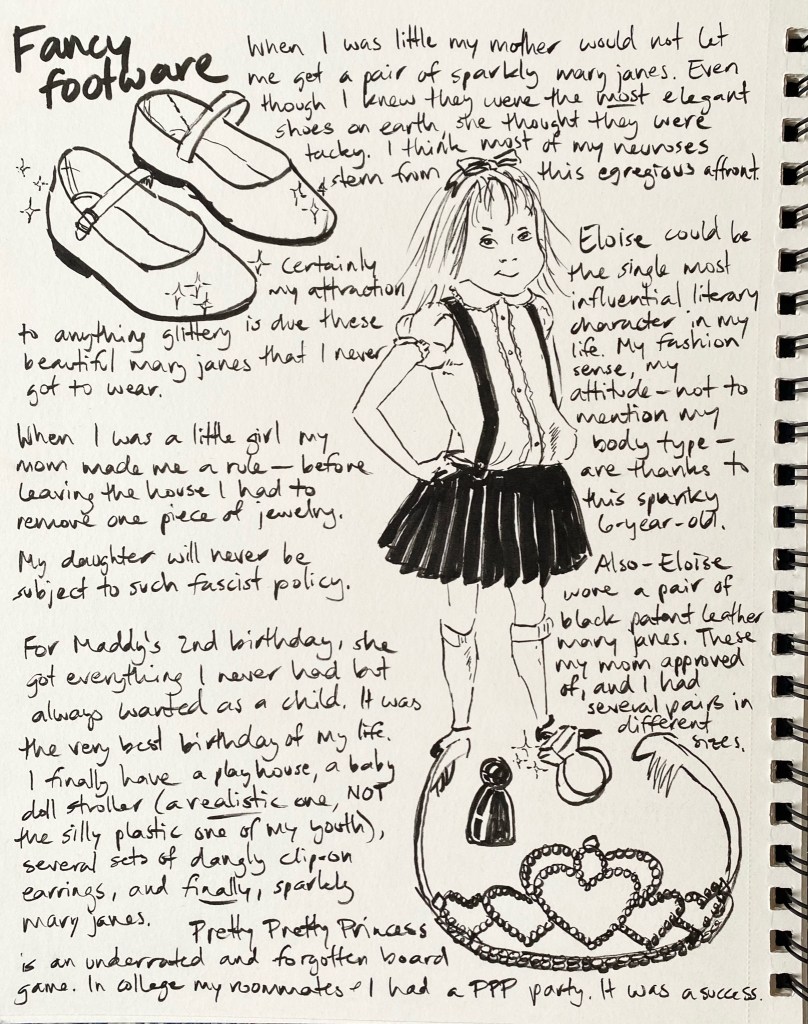 Fancy
footware
When I was little my mother would not let
me get a pair of sparkly mary janes. Even
though I knew they were the most elegant
shoes on earth, she thought they were
tacky. I think most of my neuroses
stem from this egregious affront.
Certainly
my attraction
to anything glittery is due these
beautiful mary janes that I never
got to wear.
When I was a little girl my
mom made me a rule — before
leaving the house I had to
remove one piece of jewelry.
My daughter will never be
subject to such fascist policy.
For Maddy's 2nd birthday, she
got everything I never had but
always wanted as a child. It was
the very best birthday of my life.
I finally have a playhouse, a baby
doll stroller (a realistic one, NOT
the silly plastic one of my youth),
several sets of dangly clip-on
earrings, and finally, sparkly
mary janes.
Eloise could be
the single most
influential literary
character in my
life. My fashion
sense, my
attitude — not to
mention my
body type —
are thanks to
this spunky
6-year-old.
Also - Eloise
wore a pair of
black patent leather
mary janes. These
my mom approved
of, and I had
several pairs in
different
sizes.
Pretty Pretty Princess
is an underrated and forgotten board
game. In college my roommates + I had a PPP party. It was a success.